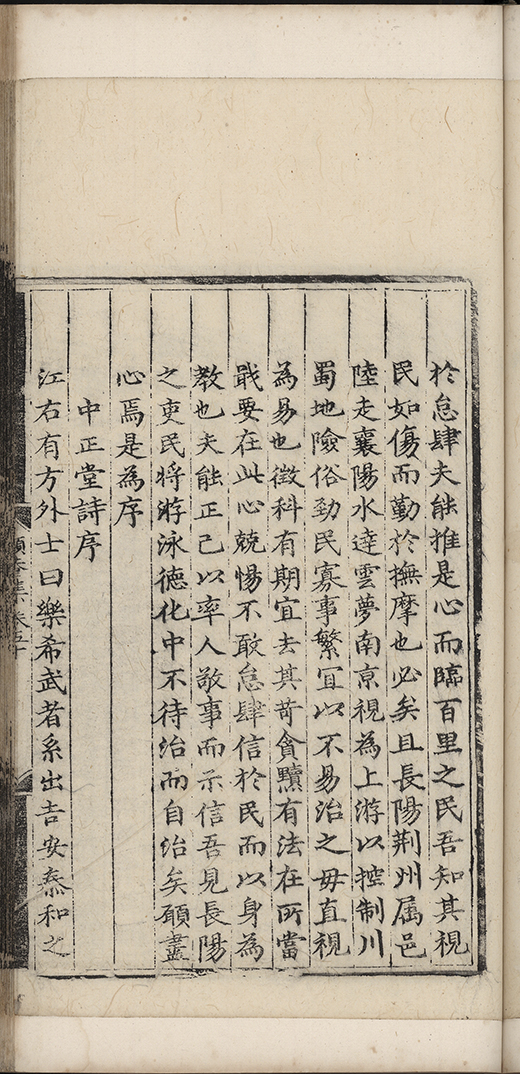 於怠肆夫能推是心而臨百里之民吾知其視
民如傷而勤於撫摩也必矣且長陽荆州属邑
陸走襄陽水達雲夢南京視為上游以控制川
蜀地險俗勁民寡事繁宜以不易治之毋直視
為易也徴科有期宜去其苛貪黷有法在所當
戢要在此心兢惕不敢怠肆信於民而以身為
教也夫能正己以率人敬事而示信吾見長陽
之吏民將游泳德化中不待治而自治矣碩盡
心焉是為序
中正堂詩序
江右有方外士曰樂希武者系出吉安泰和之